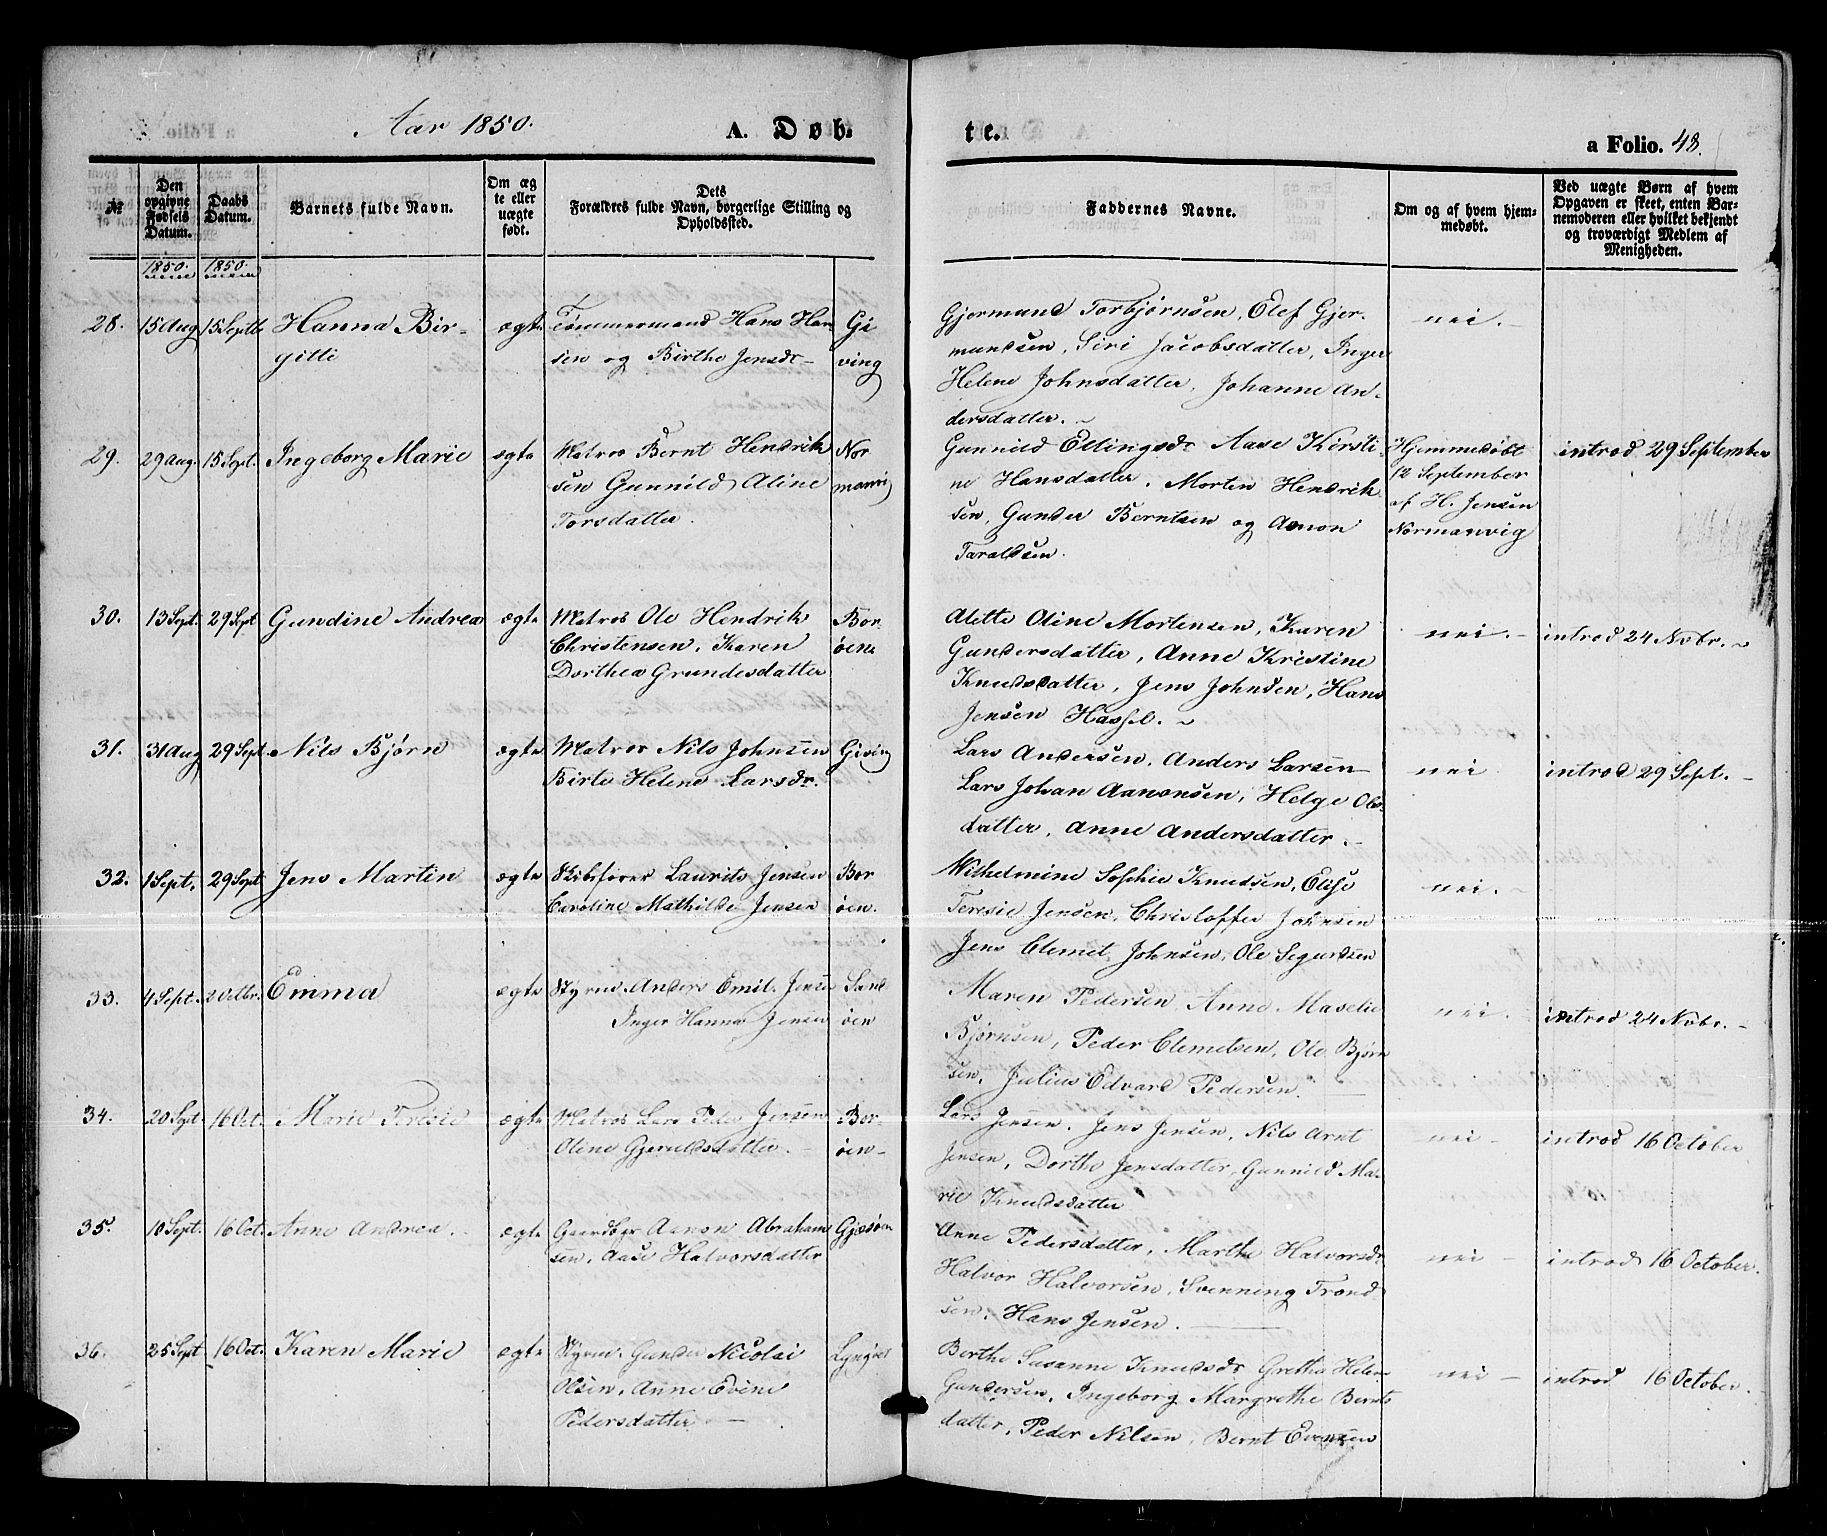 Aar 1850.
A. Døb-
te.
a Folio. 48.
№
Den opgivne Fødsels Datum.
Daabs Datum.
Barnets fulde Navn.
Om ægte eller uægte født.
Dets Forældres fulde Navn, borgerlige Stilling og Opholdssted.
Faddernes Navne.
Om og af hvem hjemmedøbt.
Ved uægte Børn af hvem Opgaven er skeet, enten Barnemoderen eller hvilket bekjendt og troværdigt Medlem af Menigheden.
1850. 1850.
28. 15 Aug 15 Septb Hanna Bir-
gitti
ægte
Tømmermand Hans Han
sen og Birthe Jensdr
Gi
ving
Gjermund Torbjørnsen, Olef Gjer-
mundsen, Siri Jacobsdatter, Inger
Helene Johnsdatter, Johanne An-
dersdatter.
nei.
29. 29 Aug. 15 Sept. Ingeborg Marie
ægte
Matros Bernt Hendrik
sen Gunnild Aline
Torsdatter.
Nor
manvi
Gunnild Ellingsdr Aase Kirsti-
ne Hansdatter, Morten Hendrik
sen, Gunder Berntsen og Aanon
Taraldsen.
Hjemmedøbt
12 September
af H. Jensen
Normanvig
introd 29 September
30. 13 Sept. 29 Sept Gundine Andrea
ægte
Matros Ole Hendrik
Christensen, Karen
Dorthea Grundesdatter
Bor-
øen
Alette Oline Mortensen, Karen
Gundersdatter, Anne Kristine
Knudsdatter, Jens Johnsen, Hans
Jensen Hassel.
nei.
introd 24 Novbr.
31. 31 Aug 29 Sept. Nils Bjørn
ægte
Matros Nils Johnsen
Birte Helene Larsdr.
Giving
Lars Andersen, Anders Larsen
Lars Johan Aanonsen, Helge Ols-
datter, Anne Andersdatter.
nei
introd 29 Sept.
32. 1 Sept. 29 Sept Jens Martin
ægte
Skibsfører Laurits Jensen
Caroline Mathilde Jensen
Bor
øen.
Wilhelmine Sophie Knudsen, Elise
Teresie Jensen, Christoffer Johnsen
Jens Clemet Johnsen, Ole Segurdsen
nei.
33. 4 Sept. 2 Octbr. Emma
ægte
Styrm. Anders Emil Jensen
Inger Hanna Jensen
Sand
øen
Maren Pedersen, Anne Maselie
Bjørnsen, Peder Clemetsen, Ole Bjørn
sen, Julius Edvard Pedersen.
nei.
introd 24 Novbr.
34. 20 Sept. 16 Oct. Marie Teresie
ægte
Matros Lars Peder Jensen
Oline Gjeruldsdatter.
Bor-
øen
Lars Jensen, Jens Jensen, Nils Arnt
Jensen, Dorthe Jensdatter, Gunnild Ma-
rie Knudsdatter
nei
introd 16 October
35. 10 Sept. 16 Oct. Anne Andrea.
ægte
Gaardbgr Aanon Abraham
sen, Aase Halvorsdatter
Gjæsøen
Anne Pedersdatter, Marthe Halvorsdr
Halvor Halvorsen, Svenning Trond
sen, Hans Jensen.
nei
introd 16 October.
36. 25 Sept 16 Oct. Karen Marie
ægte
Styrm. Gunder Nicolai
Olsen, Anne Evine
Pedersdatter
Berthe Susanne Knudsdr Gretha Helene
Gundersen, Ingeborg Margrethe Bernts
datter, Peder Nilsen, Bernt Evensen
nei
introd 16 October.